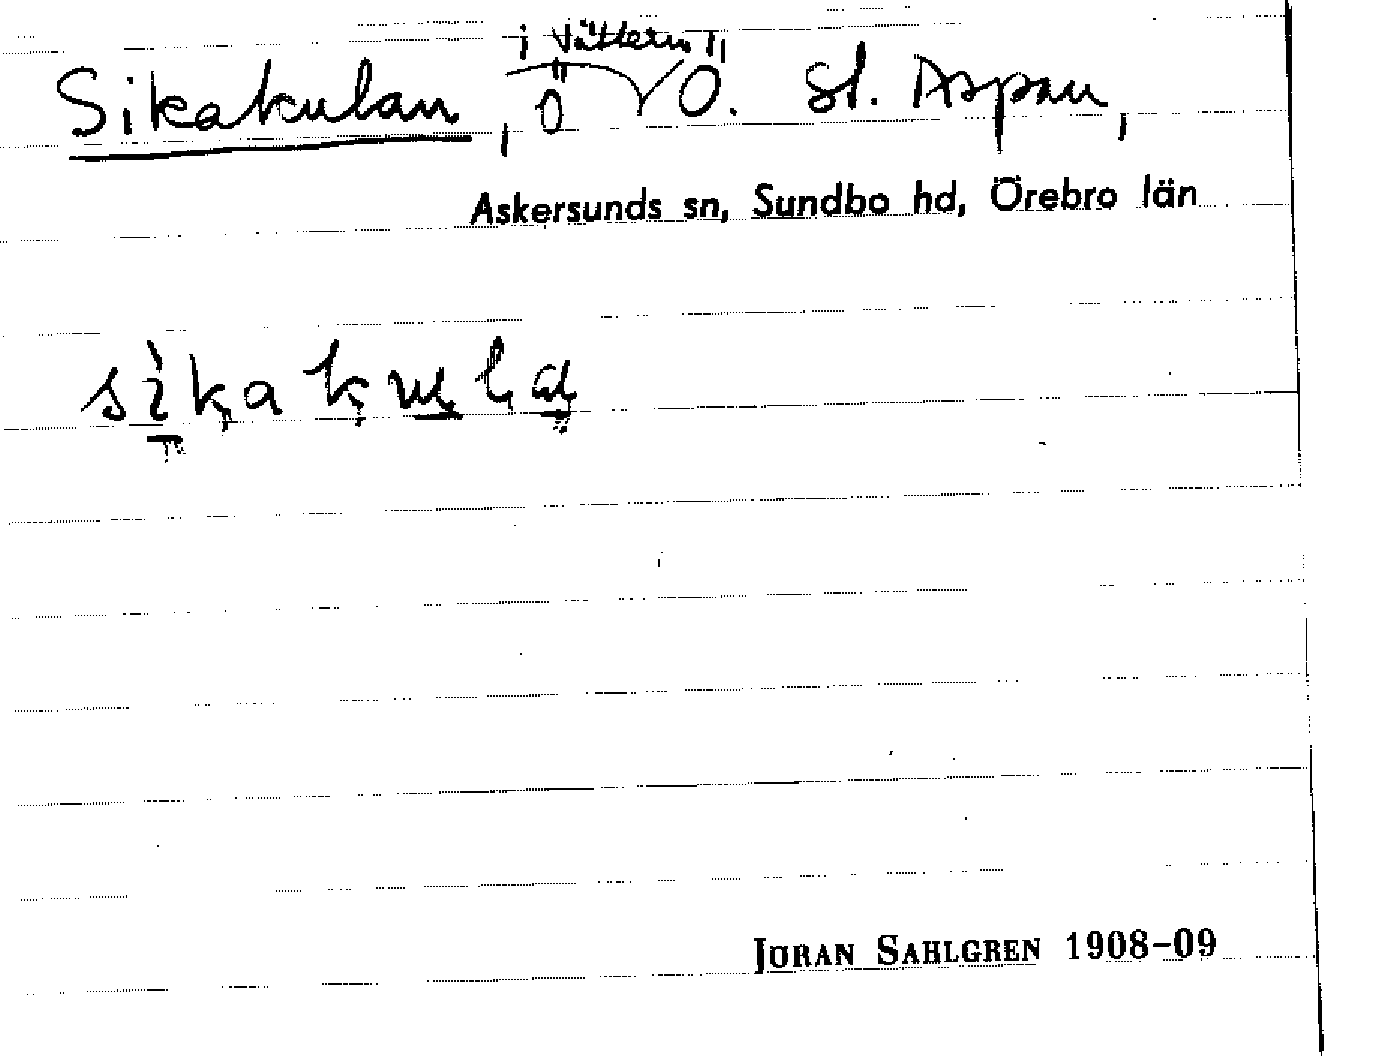 i Vättern,
Sikakulan, ö O. St. Aspan,
Askersunds sn, Sundbo hd, Örebro län
JÖRAN SAHLGREN 1908-09